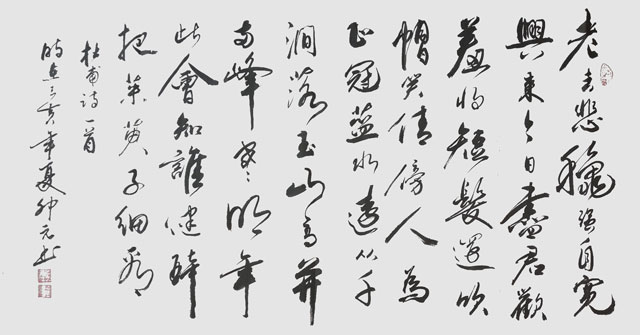 老去悲龝强自寬
興来今日盡君歡
羞将短髮還吹
帽笑倩傍人為
正冠藍水遠从千
澗落玉山高并
两峰寒明年
此會知誰健醉
把茱萸子細看
杜甫诗一首
時在己亥年夏仲元书